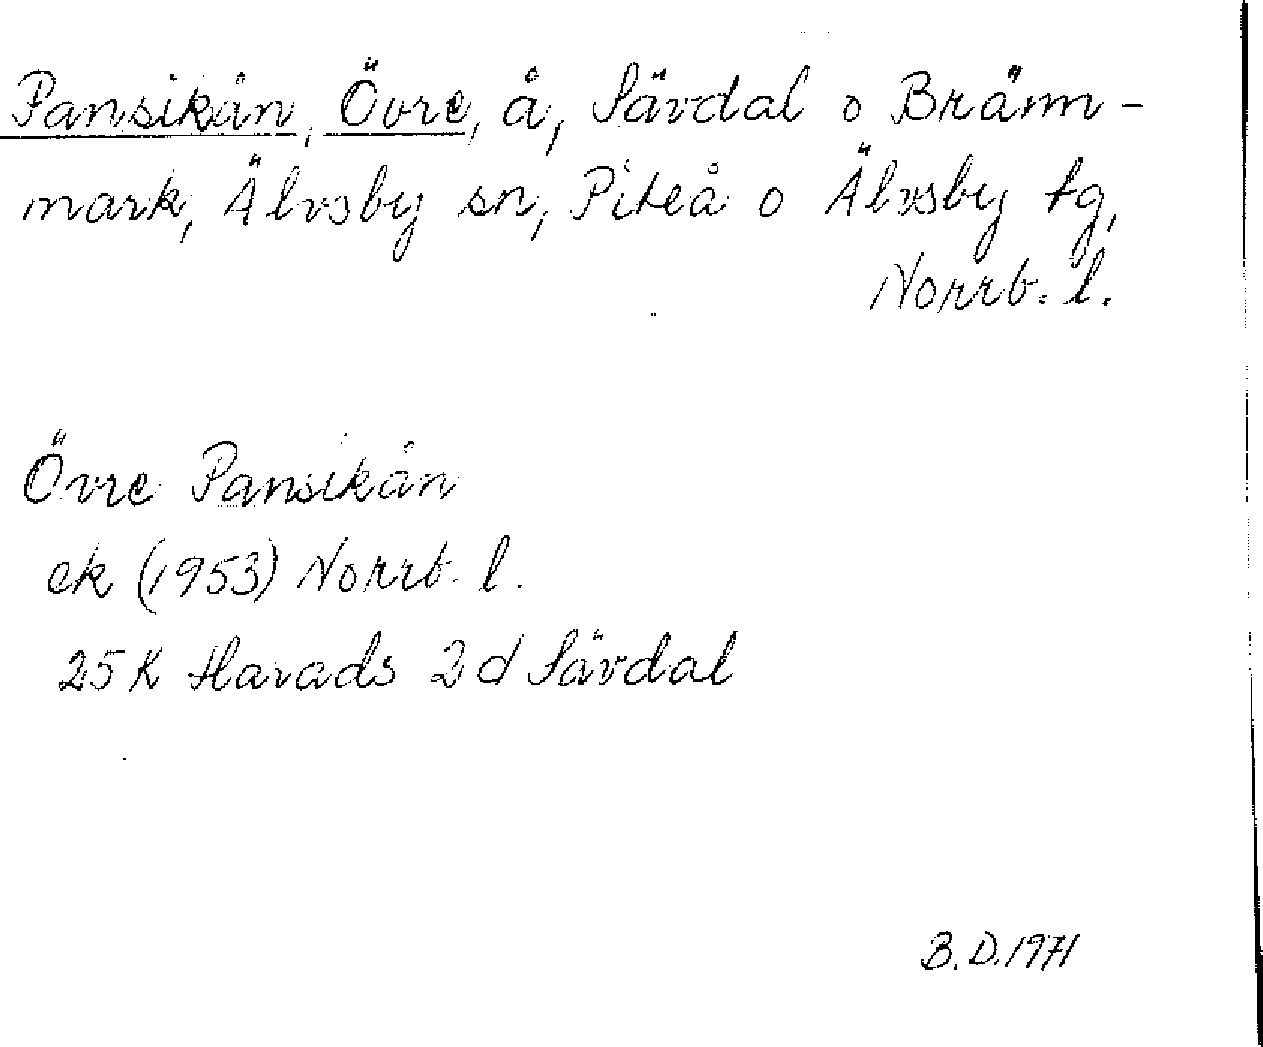 Pansikån, Övre, å, Sävdal o Bränn-
mark, Älvsby sn, Piteå o Älvsby tg,
Norrb. l.
Övre Pansikån
ek (1953) Norrb. l.
25 K Harads 2 d Sävdal
B. D. 1971